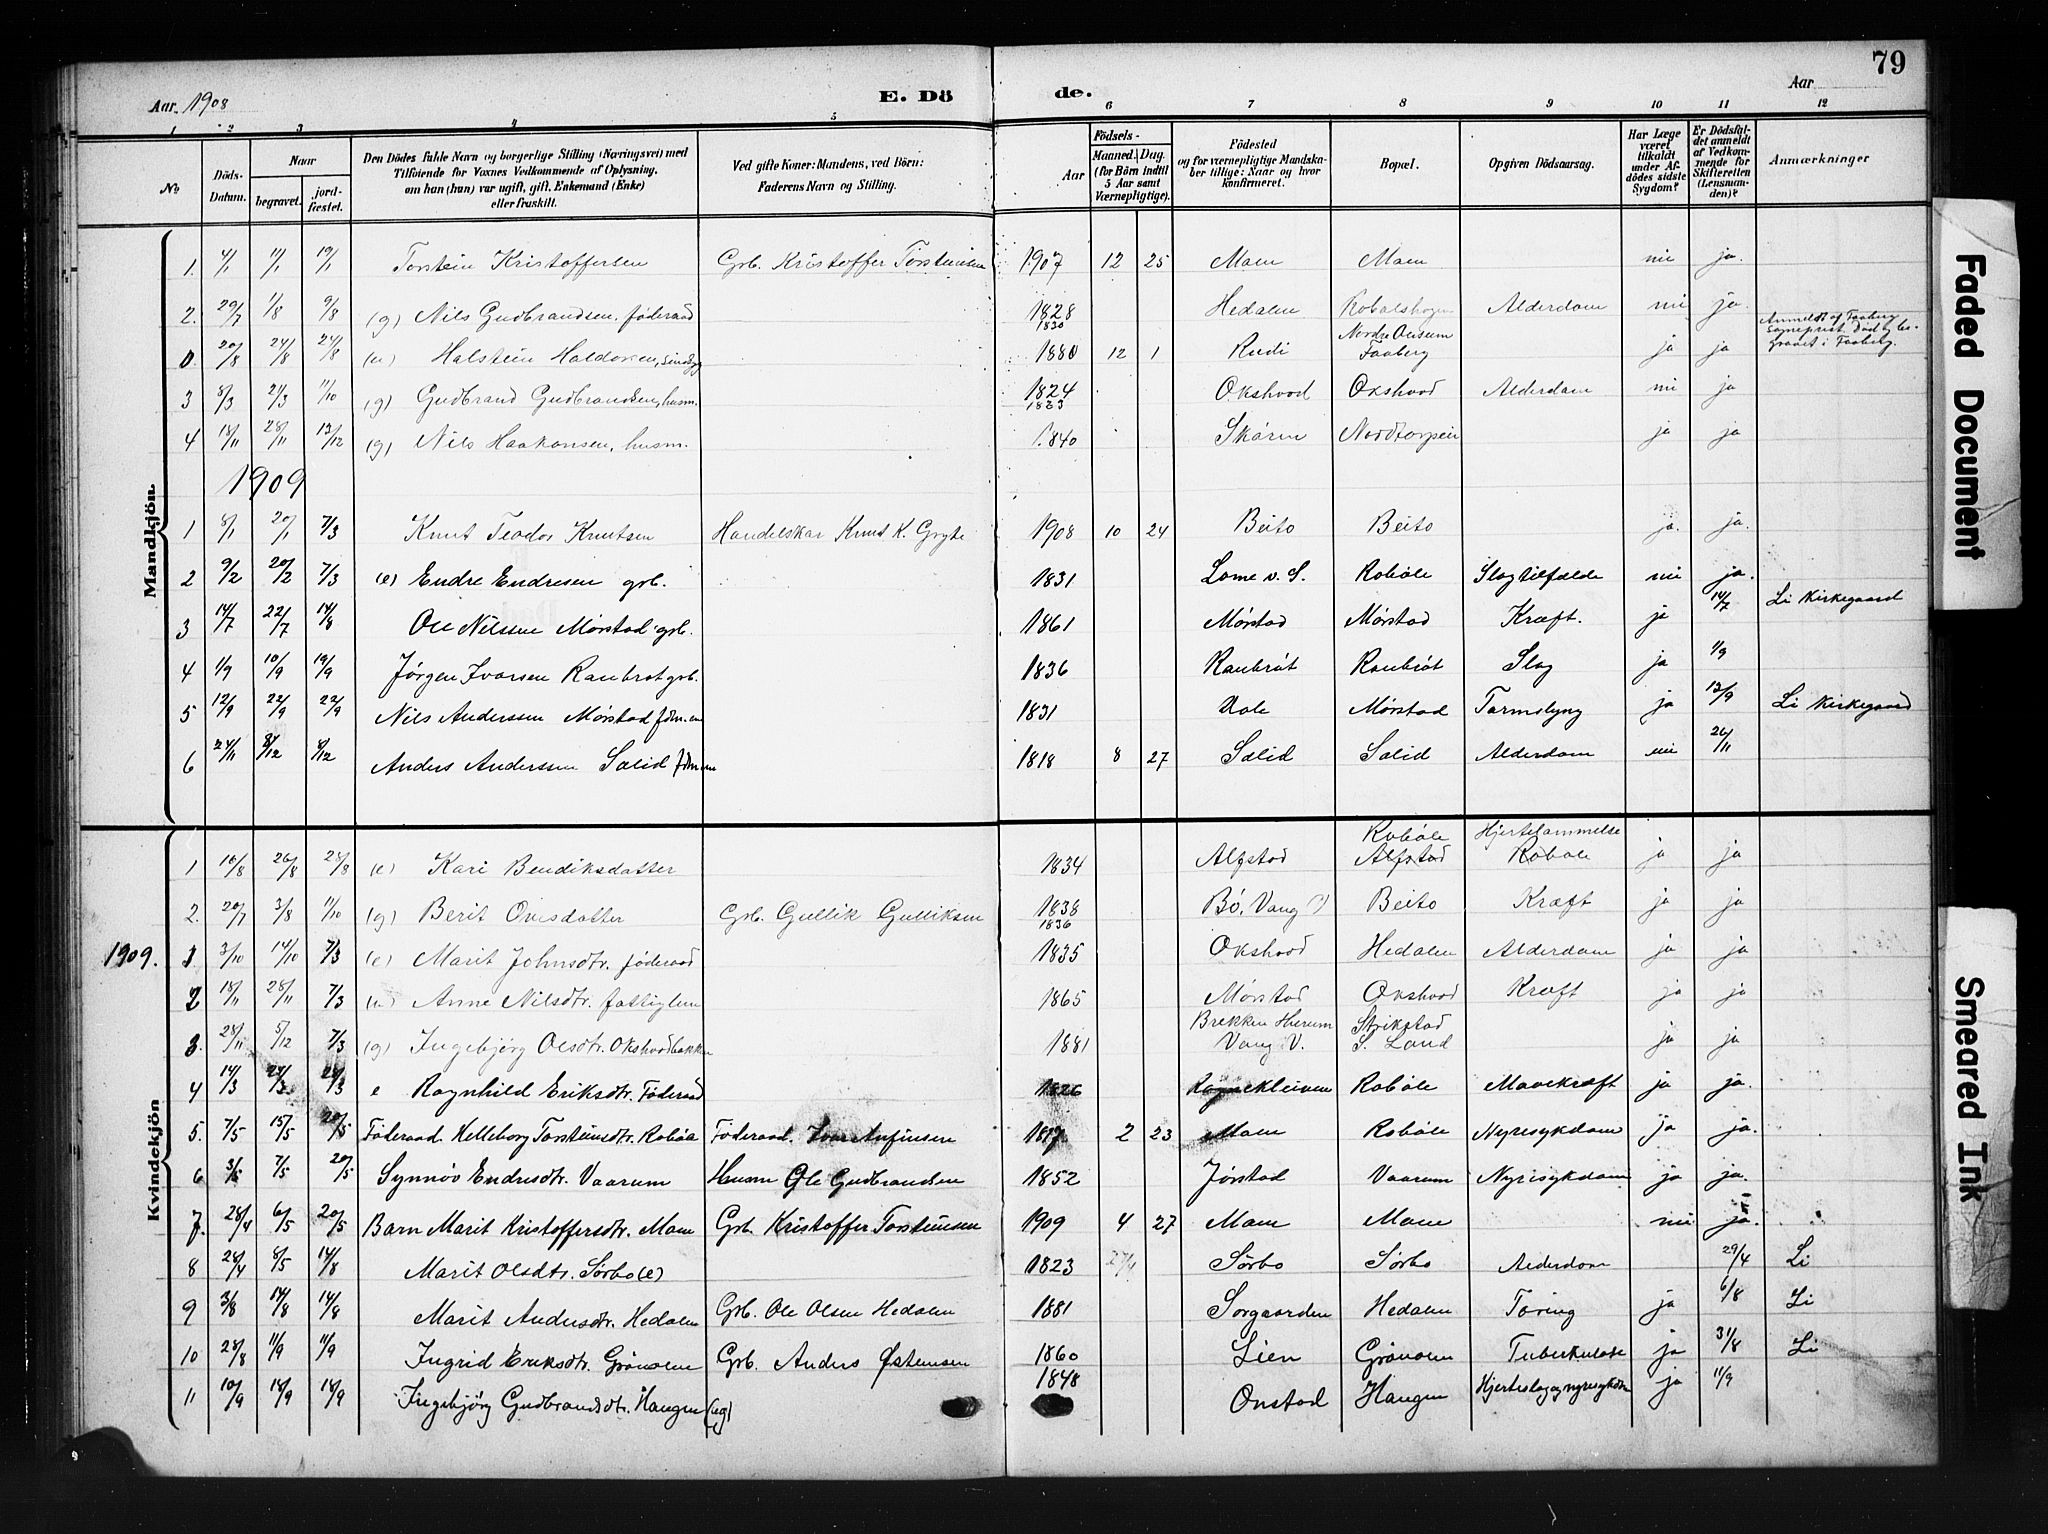 79
Aar 1908
E. Dö de.
Aar
1 2 3 4 5 6 7 8 9 10 11 12
No
Döds-Datum.
Naar
begravet.
jord-fæstet.
Den Dödes fulde Navn og borgerlige Stilling (Næringsvei) med
Tilföiende for Voxnes Vedkommende af Oplysning,
om han (hun) var ugift, gift, Enkemand (Enke)
eller fraskilt.
Ved gifte Koner: Mandens, ved Börn:
Faderens Navn og Stilling.
Födsels-
Aar
Maaned. Dag.
(for Börn indtil
5 Aar samt
Værnepligtige).
Födested
og for værnepligtige Mandska-
ber tillige: Naar og hvor
konfirmeret.
Bopæl.
Opgiven Dödsaarsag.
Har Læge
været
tilkaldt
under Af-
dödes sidste
Sygdom?
Er Dödsfal-
det anmeldt
af Vedkom-
mende for
Skifteretten
(Lensman-
den)?
Anmærkninger
Mandkjön.
1. 4/1 11/1 19/1 Torstein Kristoffersen Grb. Kristoffer Torsteinsen 1907 12 25 Moen Moen nei ja.
2. 29/7 1/8 9/8 (g) Nils Gudbrandsen, føderaad 1828 1830 Hedalen Alderdom nei ja.
0. 20/8 24/8 24/8 (u) Halstein 1880 12 1 Rudi Faaberg ja ja
3 8/3 21/3 11/10 (g) Gudbrand Gudbrandsen, husm. 1824 1823 Okshovd Okshovd Alderdom nei ja
4 18/11 28/11 13/12 (g) Nils Haakonsen, husm. 1840 Skåren Nordtorpein ja ja
1909
1 8/1 20/1 7/3 Knut Teodor Knutsen Handelskar Knut K. 1908 10 24 Beito Beito ja. ja.
2 9/2 20/2 7/3 (e) Endre Endresen grb. 1831 Lome v. S. Robøle Slagtilfælde nei ja.
3 14/7 22/7 14/8 Ole Nilssen Mørstad grb. 1861 Mørstad Mørstad Kræft. ja 14/7 Li Kirkegaard
4 1/9 10/9 19/9 Jørgen Ivarsen Ranbrøt grb. 1836 Ranbrøt Ranbrøt Slag ja 1/9
5 12/9 22/9 22/9 Nils Anderssen Mørstad 1831 Mørstad Tarmslyng ja 13/9 Li Kirkegaard
6 24/11 8/12 8/12 Anders Anderssen Sælid 1818 8 27 Sælid Sælid Alderdom nei 26/11
Kvindekjön
Robøle Hjertelammelse
1 16/8 26/8 28/8 (e) Kari Bendiksdatter 1834 Alfstad Alfstad Robøle ja ja
2. 20/7 3/8 11/10 (g) Berit Ovesdatter Grb. Gullik Gulliksen 1838 1836 Bø, Vang (?) Beito Kræft ja ja
1909. 1 3/10 14/10 7/3 (e) Marit Johnsdtr. føderaad 1835 Okshovd Hedalen Alderdom ja ja
2 18/11 28/11 7/3 (u) Anne Nilsdtr. fattiglem 1865 Mørstad Okshovd Kræft ja ja
3. 28/11 5/12 7/3 (g) Ingebjørg Olsdtr. Okshovdbakken 1881 Brekken Hurum Vang V. Strikstad S. Land ja ja
4 14/3 e Ragnhild Eriksdtr. Føderaad 1826 Robøle Mavekræft ja ja.
5. 7/5 15/5 20/5 Føderaad. Helleborg Torsteinsdtr. Robøle Føderaad. Ivar Arfinsen 2 23 Moen Robøle Nyresykdom ja ja.
6 3/5 7/5 20/5 Synnøv Endresdtr. Vaarum Husm Ole Gudbrandsen 1852 Jørstad Vaarum Nyresykdom ja ja.
7. 28/4 6/5 20/5 Barn Marit Kristoffersdtr. Moen Grb. Kristoffer Torsteinsen 1909 4 27 Moen Moen nei ja.
8 28/4 8/5 14/8 Marit Olsdtr. Sørbo (e) 1823 27/4 Sørbo Sørbo Alderdom 29/4 Li
9 3/8 14/8 14/8 Marit Andersdtr. Hedalen Grb. Ole Olsen Hedalen 1881 Sørgaarden Hedalen Tæring ja 6/8 Li
10 28/8 11/9 11/9 Ingrid Eriksdtr. Grønolen Grb. Anders Østensen 1860 Lien Grønolen Tuberkulose ja 31/8 Li
11 10/9 18/9 18/9 Ingebjørg Gudbrandsdtr. Haugen (ug) 1848 Onstad Haugen Hjerteslag og nyresykdom ja 11/9
Faded Document
Smeared Ink